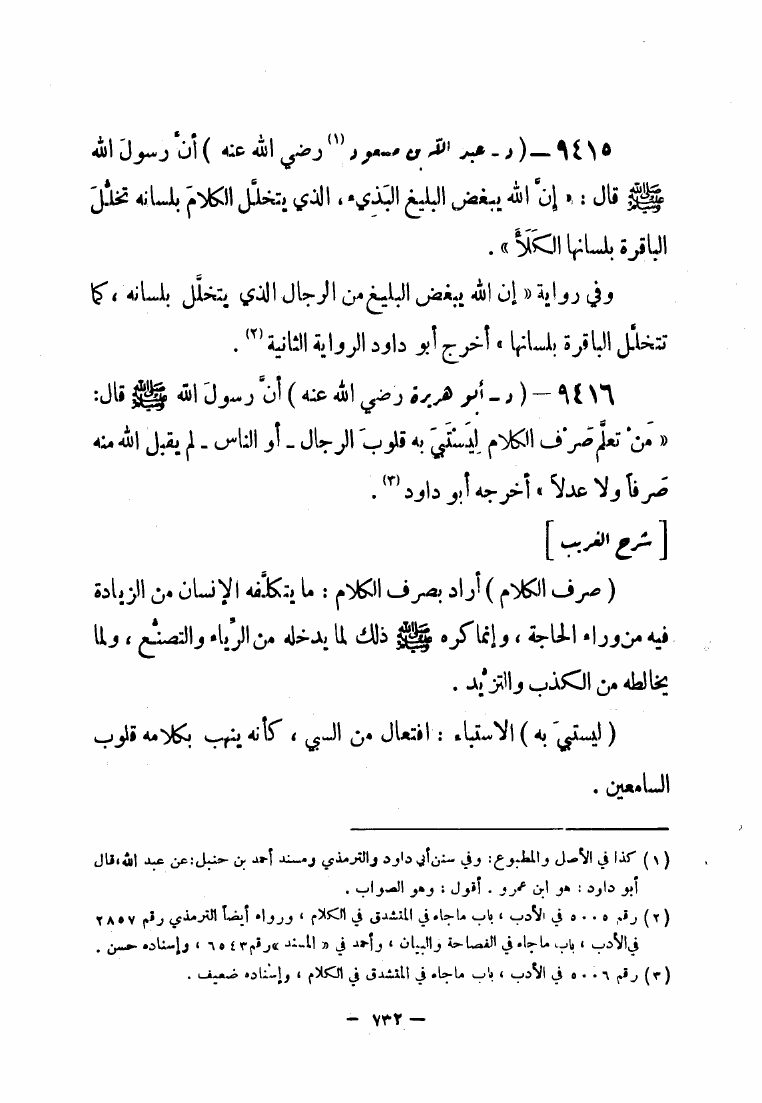 ٩٤١٥ — ( د - عبد الله بن مسعود (١) رضي الله عنه ) أنَّ رسولَ الله
ﷺ قال : « إنَّ الله يبغض البليغ البَذيء ، الذي يتخلَّل الكلامَ بلسانه تخلُّلَ
الباقرة بلسانها الكَلَأَ » .
وفي رواية « إن الله يبغض البليغ من الرجال الذي يتخلَّل بلسانه ، كما
تتخلَّل الباقرة بلسانها » أخرج أبو داود الرواية الثانية (٢) .
٩٤١٦ — ( د - أبو هريرة رضي الله عنه ) أنَّ رسولَ الله ﷺ قال :
« مَنْ تعلَّم صَرْف الكلام لِيَسْتَبيَ به قلوبَ الرجال - أو الناس - لم يقبل الله منه
صَرفاً ولا عدلاً » أخرجه أبو داود (٣) .
[ شرح الغريب ]
( صرف الكلام ) أراد بصرف الكلام : ما يتكلَّفه الإنسان من الزيادة
فيه من وراء الحاجة ، وإنما كره ﷺ ذلك لما يدخله من الرِّياء والتصنُّع ، ولما
يخالطه من الكذب والتزيُّد .
( ليستبيَ به ) الاستباء : افتعال من السبي ، كأنه ينهب بكلامه قلوب
السامعين .
(١) كذا في الأصل والمطبوع : وفي سنن أبي داود والترمذي ومسند أحمد بن حنبل : عن عبد الله ، قال
أبو داود : هو ابن عمرو . أقول : وهو الصواب .
(٢) رقم ٥٠٠٥ في الأدب ، باب ماجاء في المتشدق في الكلام ، ورواه أيضاً الترمذي رقم ٢٨٥٧
في الأدب ، باب ماجاء في الفصاحة والبيان ، وأحمد في « المسند » رقم ٦٥٤٣ ، وإسناده حسن .
(٣) رقم ٥٠٠٦ في الأدب ، باب ماجاء في المتشدق في الكلام ، وإسناده ضعيف .
— ٧٣٢ —